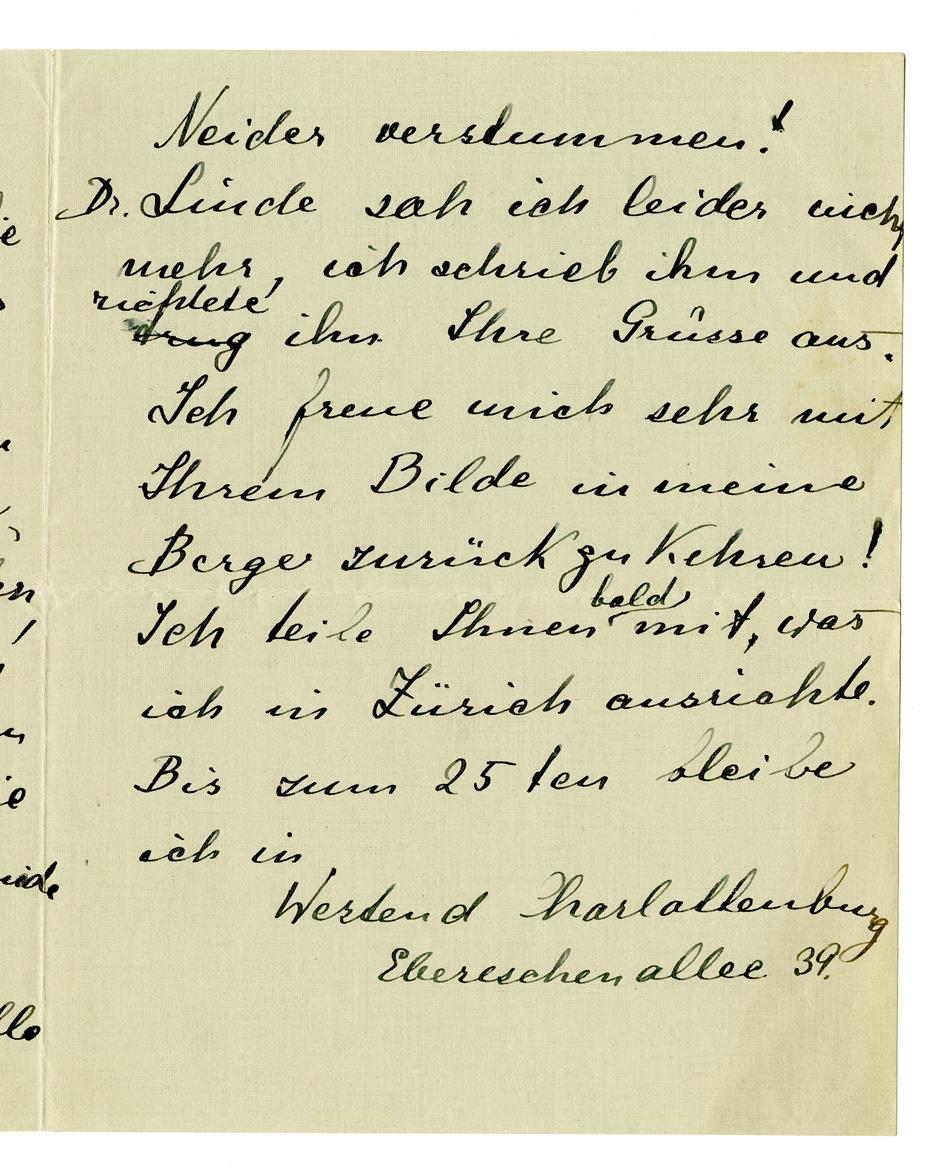 Neider verstummen!
Dr. Linde sah ich leider nicht
mehr, ich schrieb ihm und
richtete
trug ihm Ihre Grüsse aus.
Ich freue mich sehr mit
Ihrem Bilde in meine
Berge zurückzukehren!
bald
Ich teile Ihnen mit, was
ich in Zürich ausrichte.
Bis zum 25ten bleibe
ich in
Westend Charlottenburg
Ebereschenallee 39.